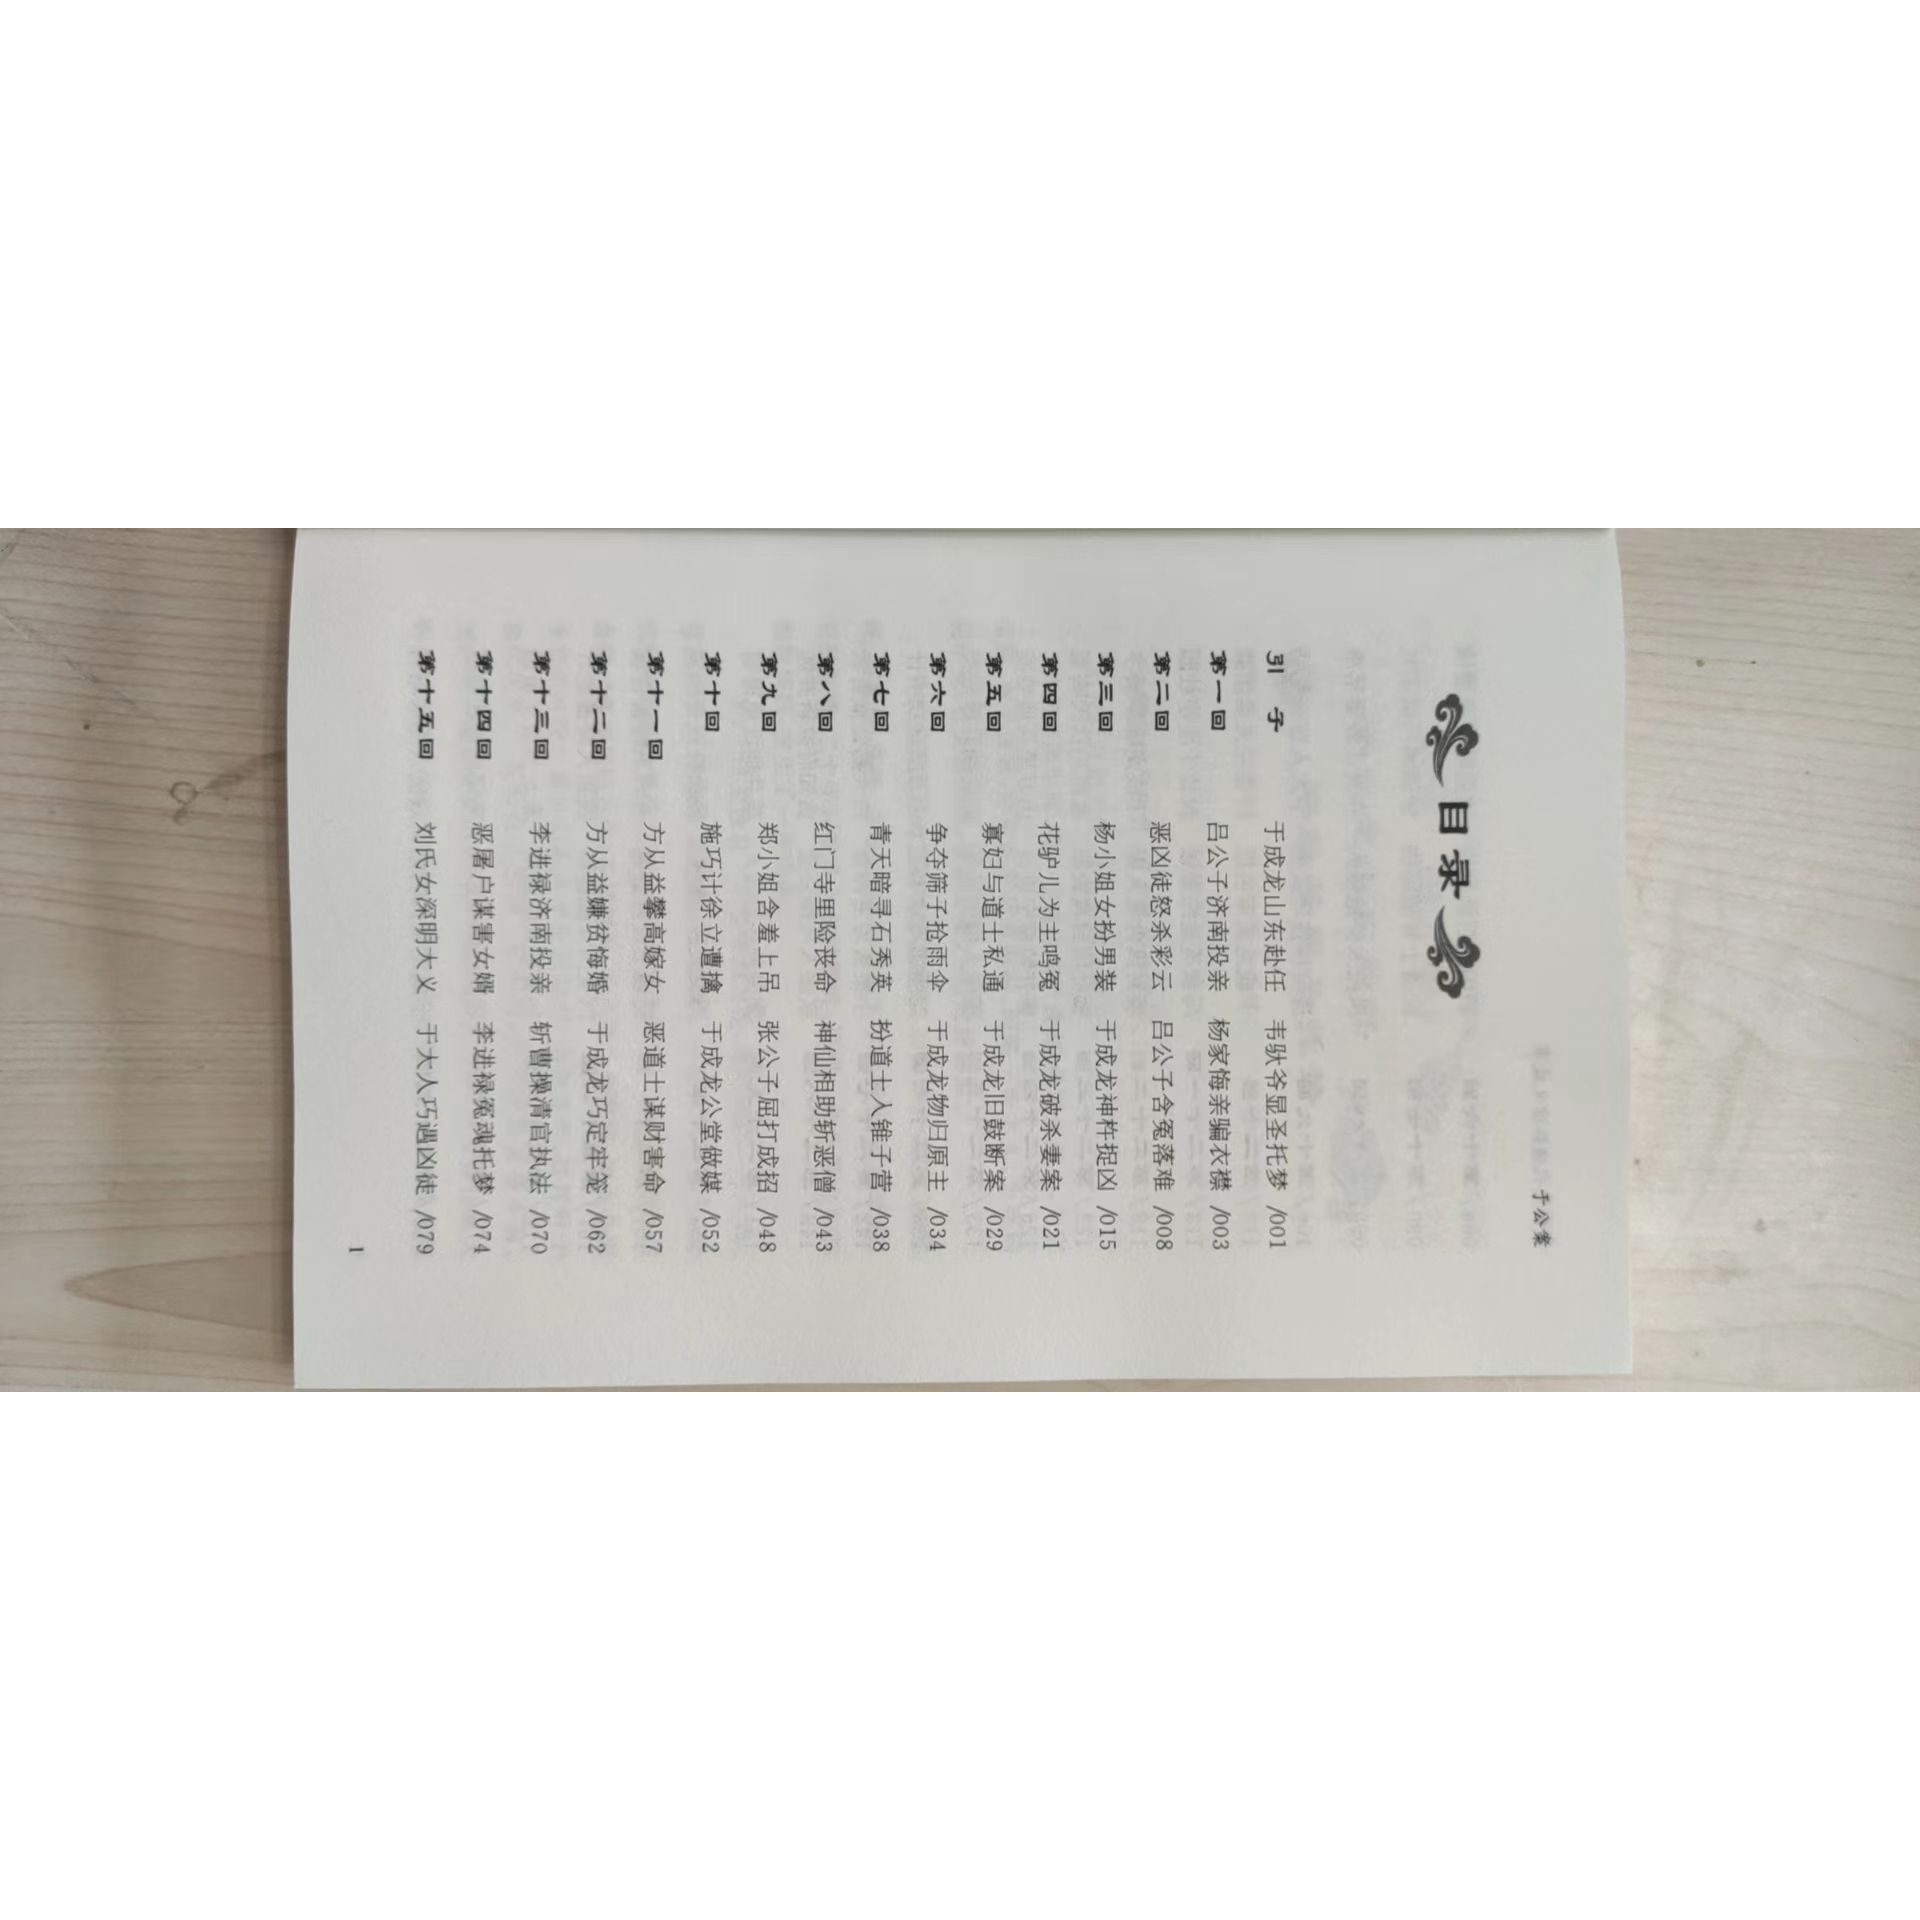 于公案
目录
引 子 于成龙山东赴任 韦驮爷显圣托梦 /001
第一回 吕公子济南投亲 杨家悔亲骗衣襟 /003
第二回 恶凶徒怒杀彩云 吕公子含冤落难 /008
第三回 杨小姐女扮男装 于成龙神柞捉凶 /015
第四回 花驴儿为主鸣冤 于成龙破杀妻案 /021
第五回 寡妇与道士私通 于成龙旧鼓断案 /029
第六回 争夺筛子抢雨伞 于成龙物归原主 /034
第七回 青天暗寻石秀英 扮道士入锥子营 /038
第八回 红门寺里险丧命 神仙相助斩恶僧 /043
第九回 郑小姐含羞上吊 张公子屈打成招 /048
第十回 施巧计徐立遭擒 于成龙公堂做媒 /052
第十一回 方从益攀高嫁女 恶道士谋财害命 /057
第十二回 方从益嫌贫悔婚 于成龙巧定牢笼 /062
第十三回 李进禄济南投亲 斩曹操清官执法 /070
第十四回 恶屠户谋害女婿 李进禄冤魂托梦 /074
第十五回 刘氏女深明大义 于大人巧遇凶徒 /079
1